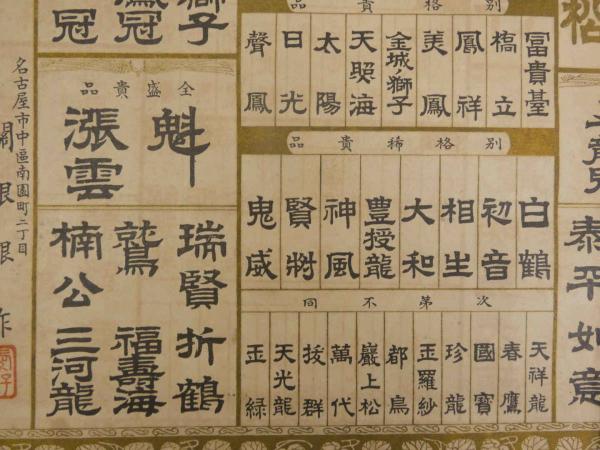 泰平
如意
別格貴品
富貴臺
橋立
鳳祥
美鳳
金城ノ獅子
太陽
日光
聲鳳
別格稀貴品
白鶴
初音
相生
大和
豊授龍
神風
鬼威
次第不同
天祥龍
春鷹
國寶
珍龍
玉羅紗
都鳥
巖上松
萬代
拔群
天光龍
玉緑
獅子
鳳冠
冠
全盛貴品
魁
漲雲
瑞賢
折鶴
鷲
福壽海
楠公
三河龍
名古屋市中區南園町二丁目